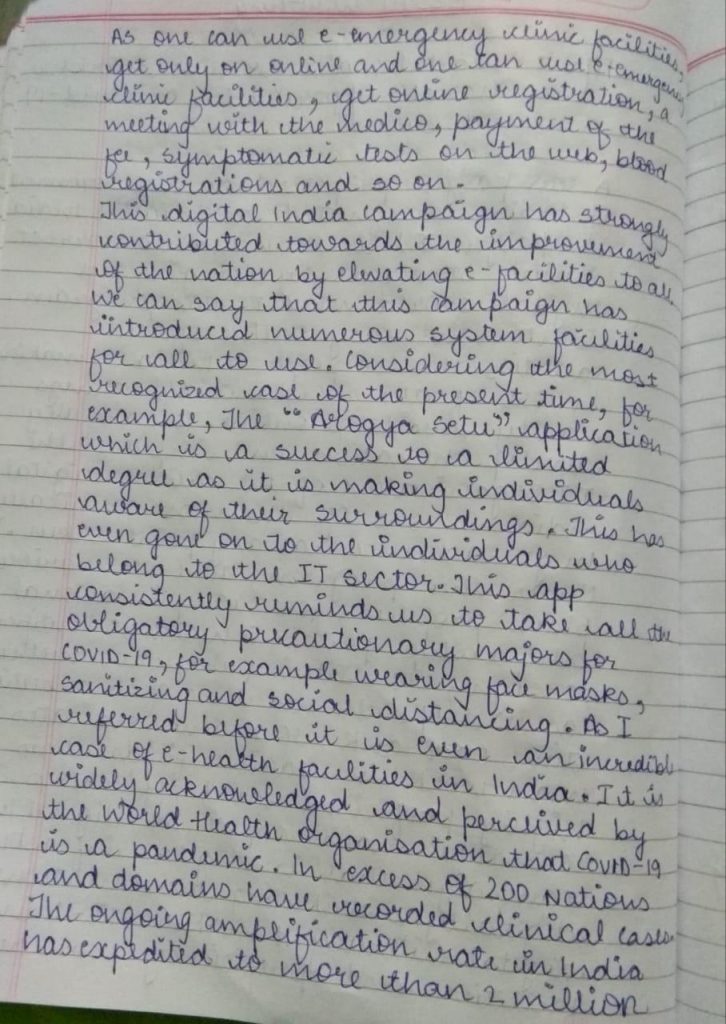 As one can use e-emergency clinic facilities,
get only on online and one can use e-emergency
clinic facilities, get online registration, a
meeting with the medico, payment of the
fee, symptomatic tests on the web, blood
registrations and so on.
This digital India campaign has strongly
contributed towards the improvement
of the nation by elevating e-facilities to all.
We can say that this campaign has
introduced numerous system facilities
for all to use. Considering the most
recognized case of the present time, for
example, The "Arogya Setu" application
which is a success to a limited
degree as it is making individuals
aware of their surroundings. This has
even gone on to the individuals who
belong to the IT sector. This app
consistently reminds us to take all the
obligatory precautionary majors for
COVID-19, for example wearing face masks,
sanitizing and social distancing. As I
referred before it is even an incredible
case of e-health facilities in India. It is
widely acknowledged and perceived by
the World Health Organisation that COVID-19
is a pandemic. In excess of 200 Nations
and domains have recorded clinical cases.
The ongoing amplification rate in India
has expedited to more than 2 million